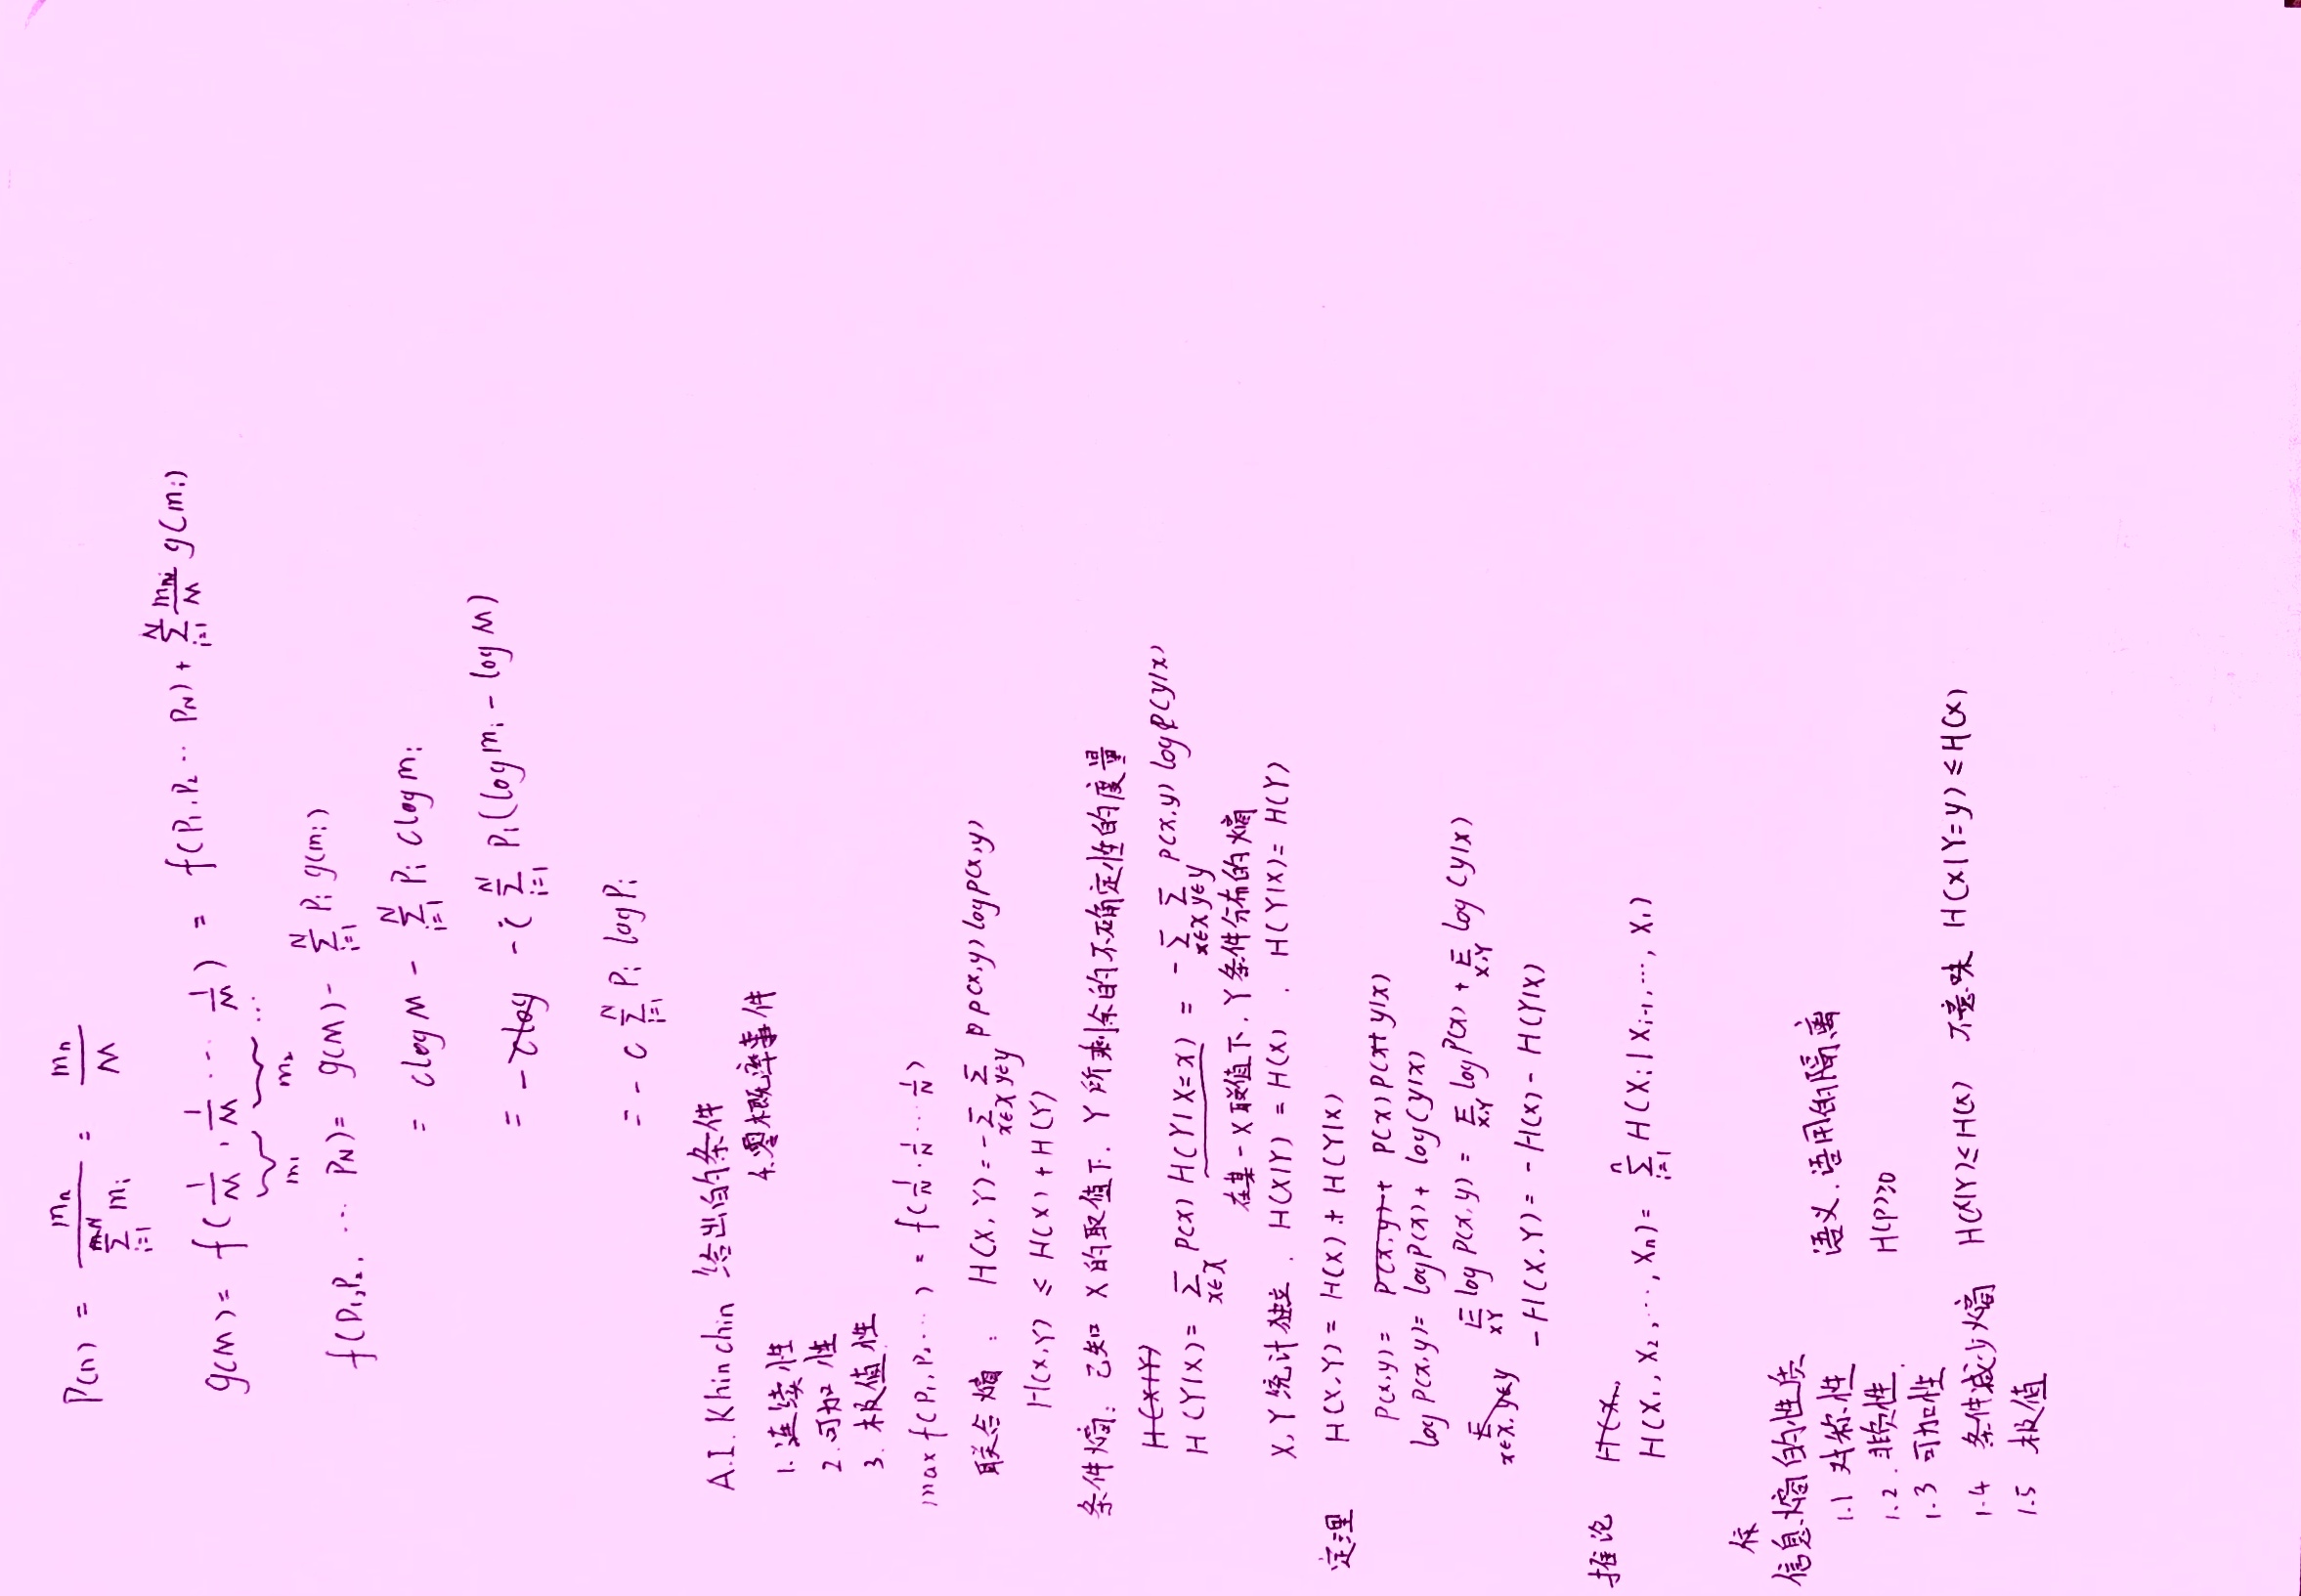 P(n) = m_n / Σ_{i=1}^{N} m_i = m_n / M
g(M) = f(1/M, 1/M ... 1/M) = f(P₁, P₂ ... P_N) + Σ_{i=1}^{N} m_i/M g(m_i)
m₁ m₂ ...
f(P₁, P₂, ... P_N) = g(M) - Σ_{i=1}^{N} P_i g(m_i)
= c log M - Σ_{i=1}^{N} P_i c log m_i
= - c Σ_{i=1}^{N} P_i (log m_i - log M)
= - c Σ_{i=1}^{N} P_i log P_i
A.I. Khinchin 给出的条件
4.零概率事件
1. 连续性
2. 可加性
3. 极值性
max f(P₁, P₂ ...) = f(1/N, 1/N ... 1/N)
联合熵: H(X, Y) = - Σ_{x∈X} Σ_{y∈y} p p(x,y) log p(x,y)
H(X,Y) ≤ H(X) + H(Y)
条件熵: 已知 X 的取值下. Y 所剩余的不确定性的度量
H(X|Y)
H(Y|X) = Σ_{x∈X} P(x) H(Y|X=x) = - Σ_{x∈X} Σ_{y∈y} P(x,y) log P(y|x)
在某一X取值下, Y条件分布的熵
X, Y 统计独立. H(X|Y) = H(X). H(Y|X) = H(Y)
定理 H(X,Y) = H(X) + H(Y|X)
P(x,y) = P(x,y)+ P(x) P(x+ y|x)
log P(x,y) = log P(x) + log(y|x)
E_{x∈X, y∈y} E_{XY} log P(x,y) = E_{X,Y} log P(x) + E_{X,Y} log(y|x)
- H(X,Y) = - H(x) - H(Y|X)
推论 H(X₁,
H(X₁, X₂, ..., X_n) = Σ_{i=1}^{n} H(X_i | X_{i-1}, ..., X₁)
信息熵的性质
1.1 对称性 语义.语用的隔离
1.2. 非负性. H(P)≥0
1.3 可加性
1.4 条件减少熵 H(X|Y) ≤ H(X) 不意味 H(X|Y=y) ≤ H(X)
1.5 极值